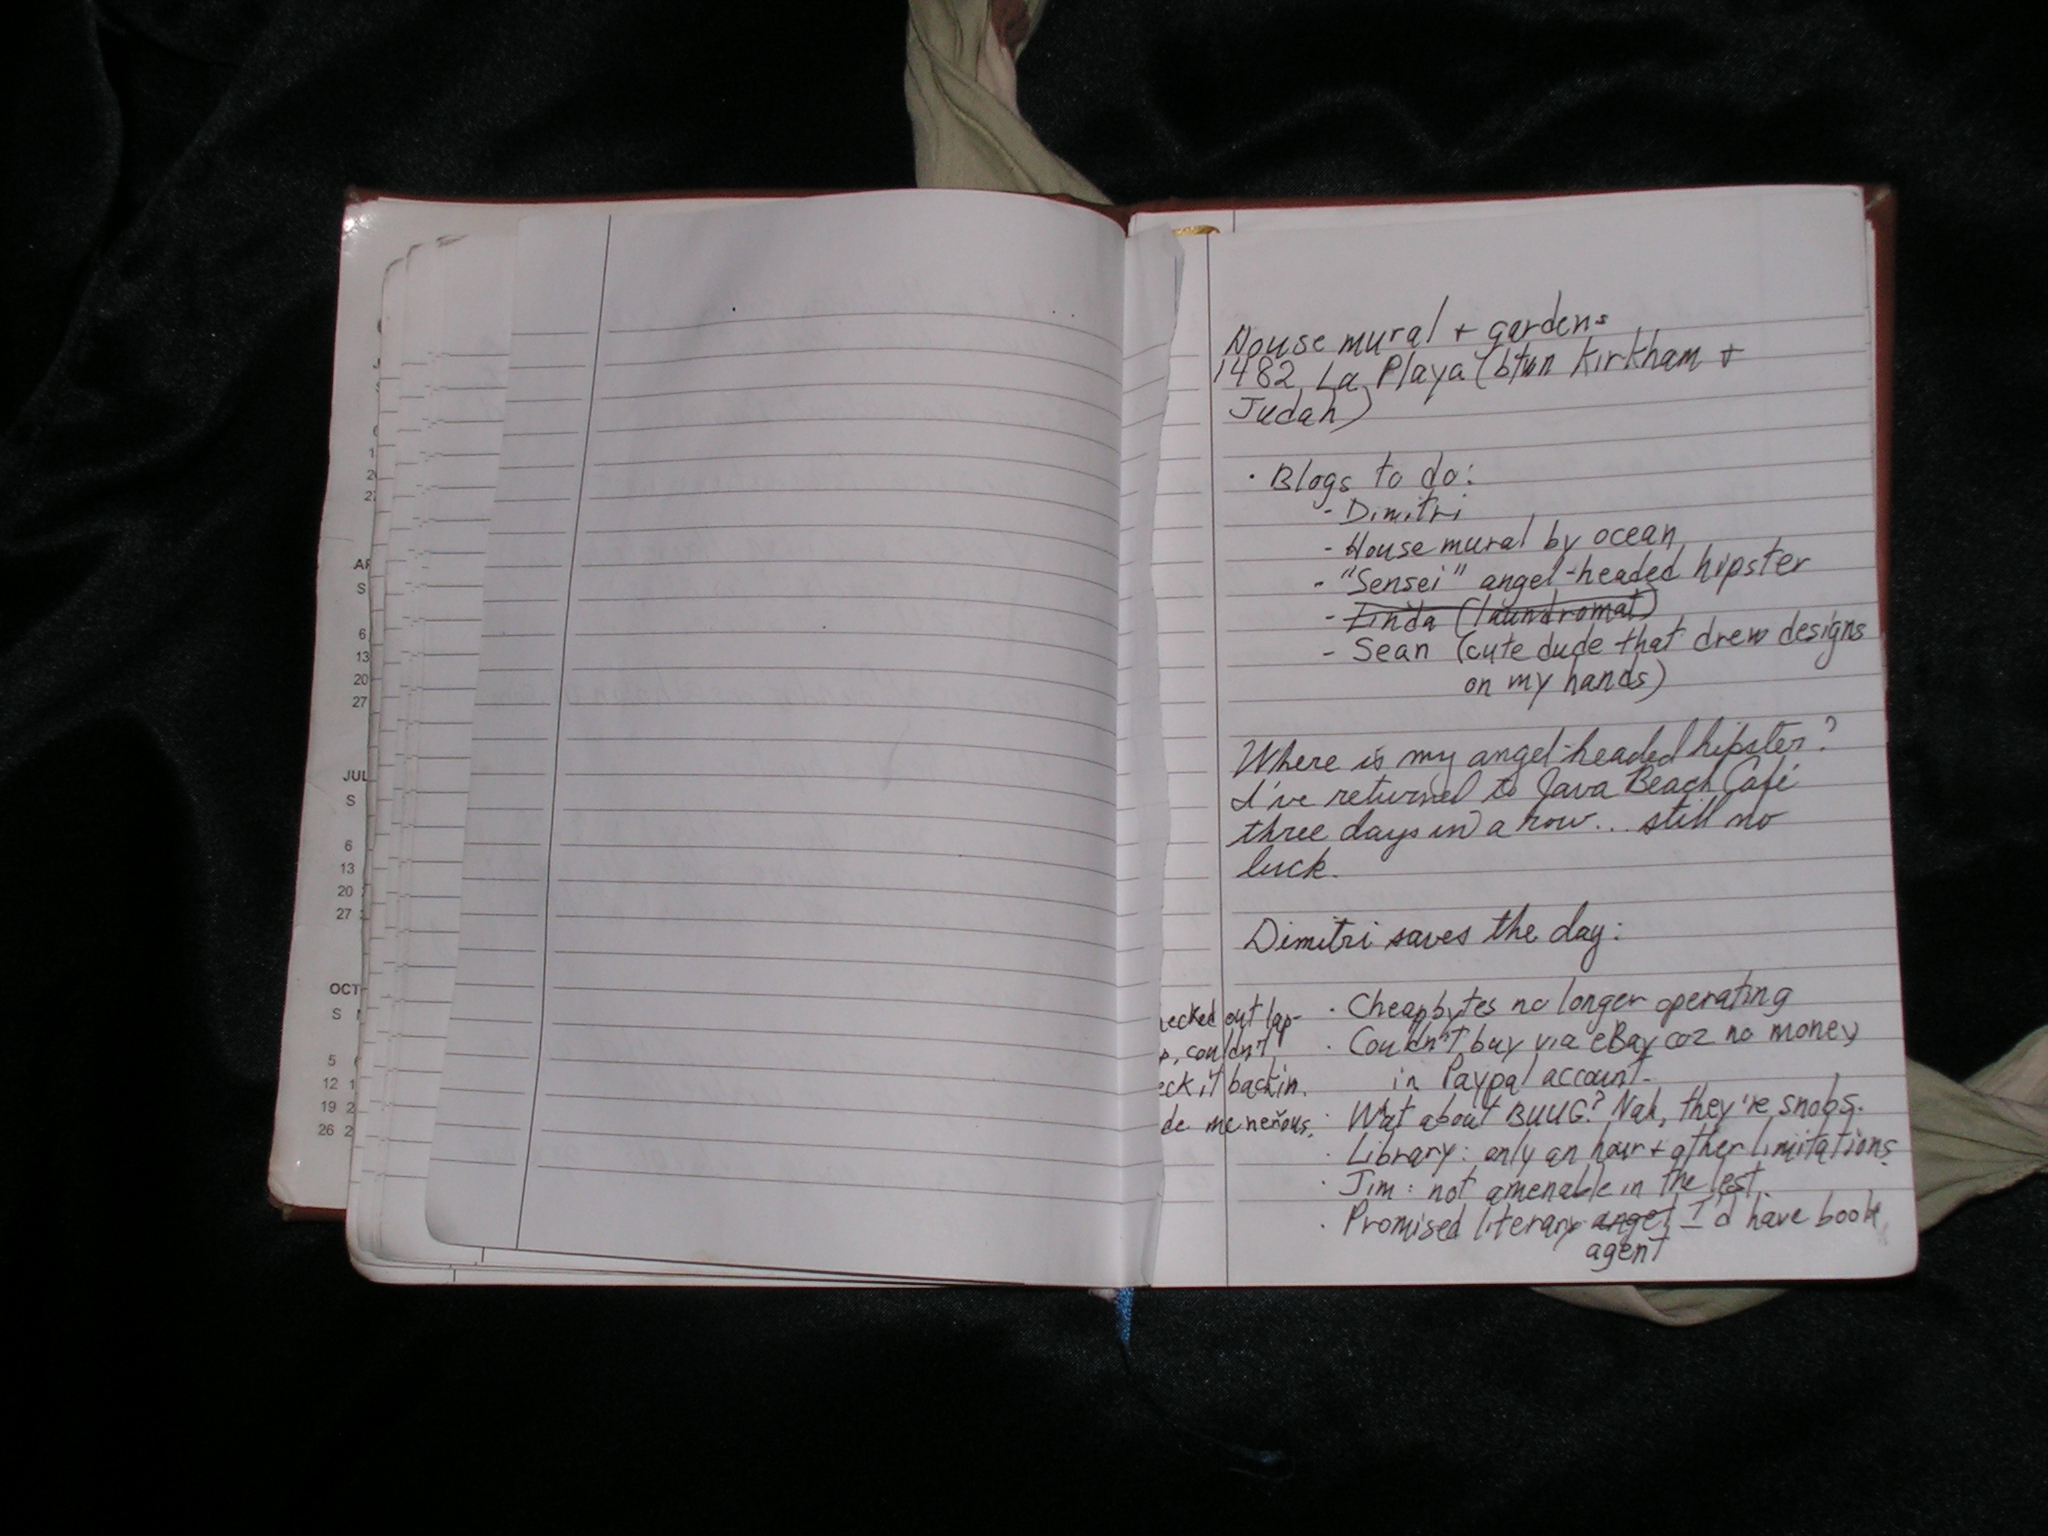 AP
S
6
13
20
27
JUL
S
6
13
20
27
OCT
S
5
12
19
26
House mural + gardens
1482 La Playa (btwn Kirkham +
Judah)
· Blogs to do:
- Dimitri
- House mural by ocean
- "Sensei" angel-headed hipster
- Linda (laundromat)
- Sean (cute dude that drew designs
on my hands)
Where is my angel-headed hipster?
I've returned to Java Beach Café
three days in a row... still no
luck.
Dimitri saves the day:
hecked out lap-
p, couldn't
eck it back in.
de me nervous.
· Cheapbytes no longer operating
· Couldn't buy via eBay coz no money
in Paypal account.
· What about BUUG? Nah, they're snobs.
· Library: only an hour + other limitations.
· Jim: not amenable in the lest
· Promised literary angel I'd have book
agent